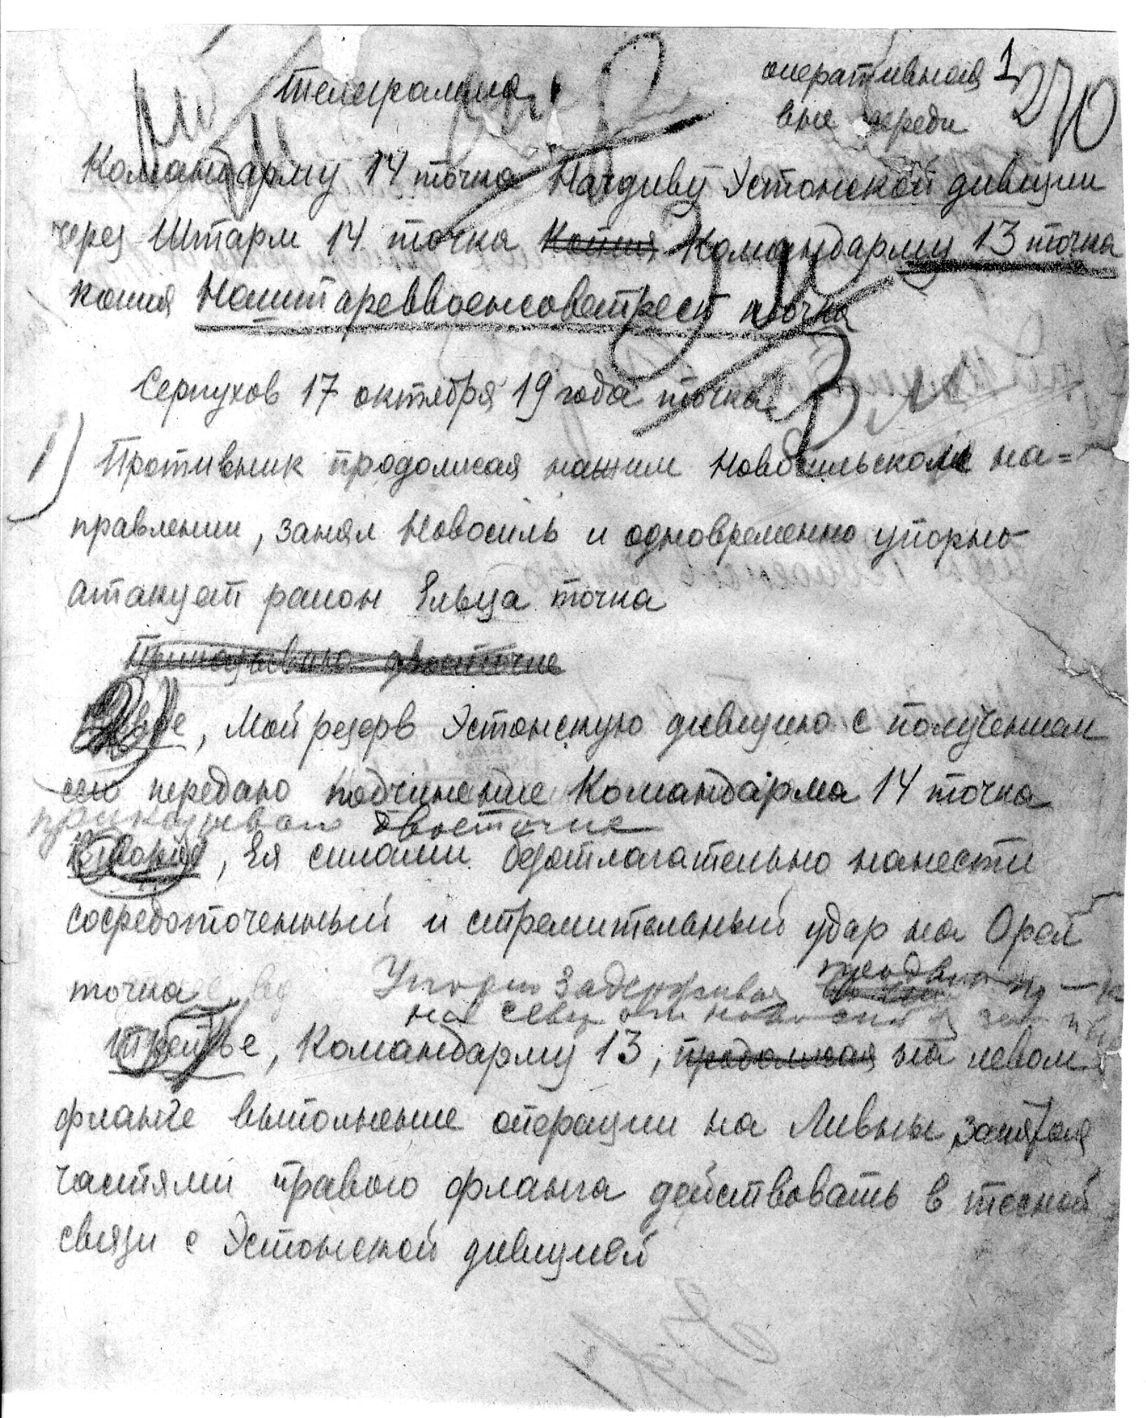 Телеграмма
оперативная 1
вне очереди
270
Командарму 14 точка Начдиву Эстонской дивизии
через Штарм 14 точка Копия Командарму 13 точка
копия Наштареввоенсоветресп точка
Серпухов 17 октября 19 года точка
1) Противник продолжая нажим Новосильском на=
правлении, занял Новосиль и одновременно упорно
атакует район Ельца точка
Приказываю двоеточие
2)
, Мой резерв Эстонскую дивизию с получением
сего передаю подчинение Командарма 14 точка
приказываю двоеточие
Второе, Ея силами безотлагательно нанести
сосредоточенный и стремительный удар на Орел
точка
Упорно задерживая
на север от
Третье, Командарму 13, продолжая на левом
фланге выполнение операции на Ливны,
частями правого фланга действовать в тесной
связи с Эстонской дивизией